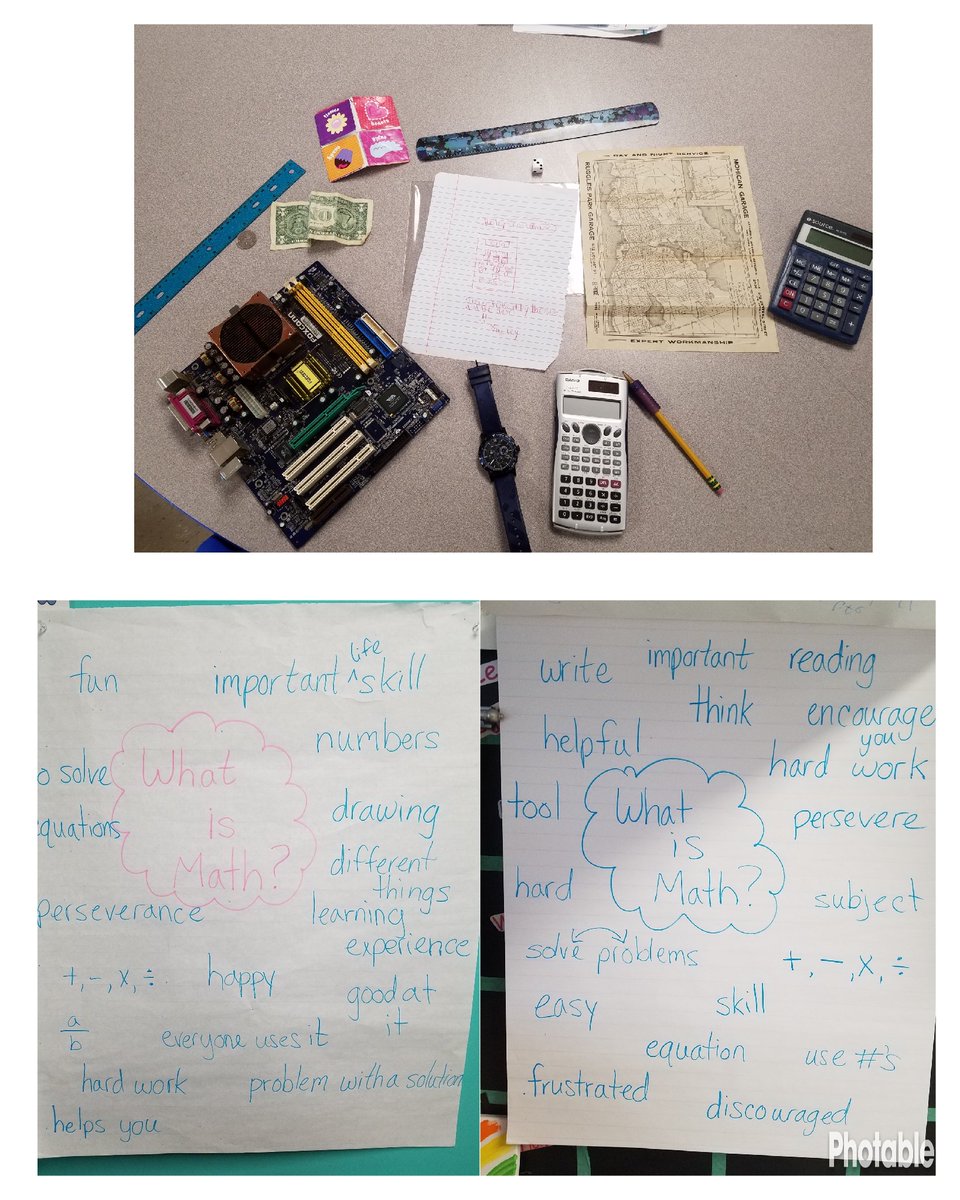 DAY AND NIGHT SERVICE
MOHICAN GARAGE
RUGGLES PARK GARAGE
EXPERT WORKMANSHIP
FOXCONN
CASIO
fun
important life skill
What
is
Math?
numbers
o solve
equations
drawing
different
things
perseverance
learning
experience
+, -, x, ÷
happy
good at
it
a
b
everyone uses it
hard work
problem with a solution
helps you
write
important
reading
think
encourage
you
helpful
hard work
tool
What
is
Math?
persevere
hard
subject
solve problems
+, -, x, ÷
easy
skill
equation
use #'s
frustrated
discouraged
Photable